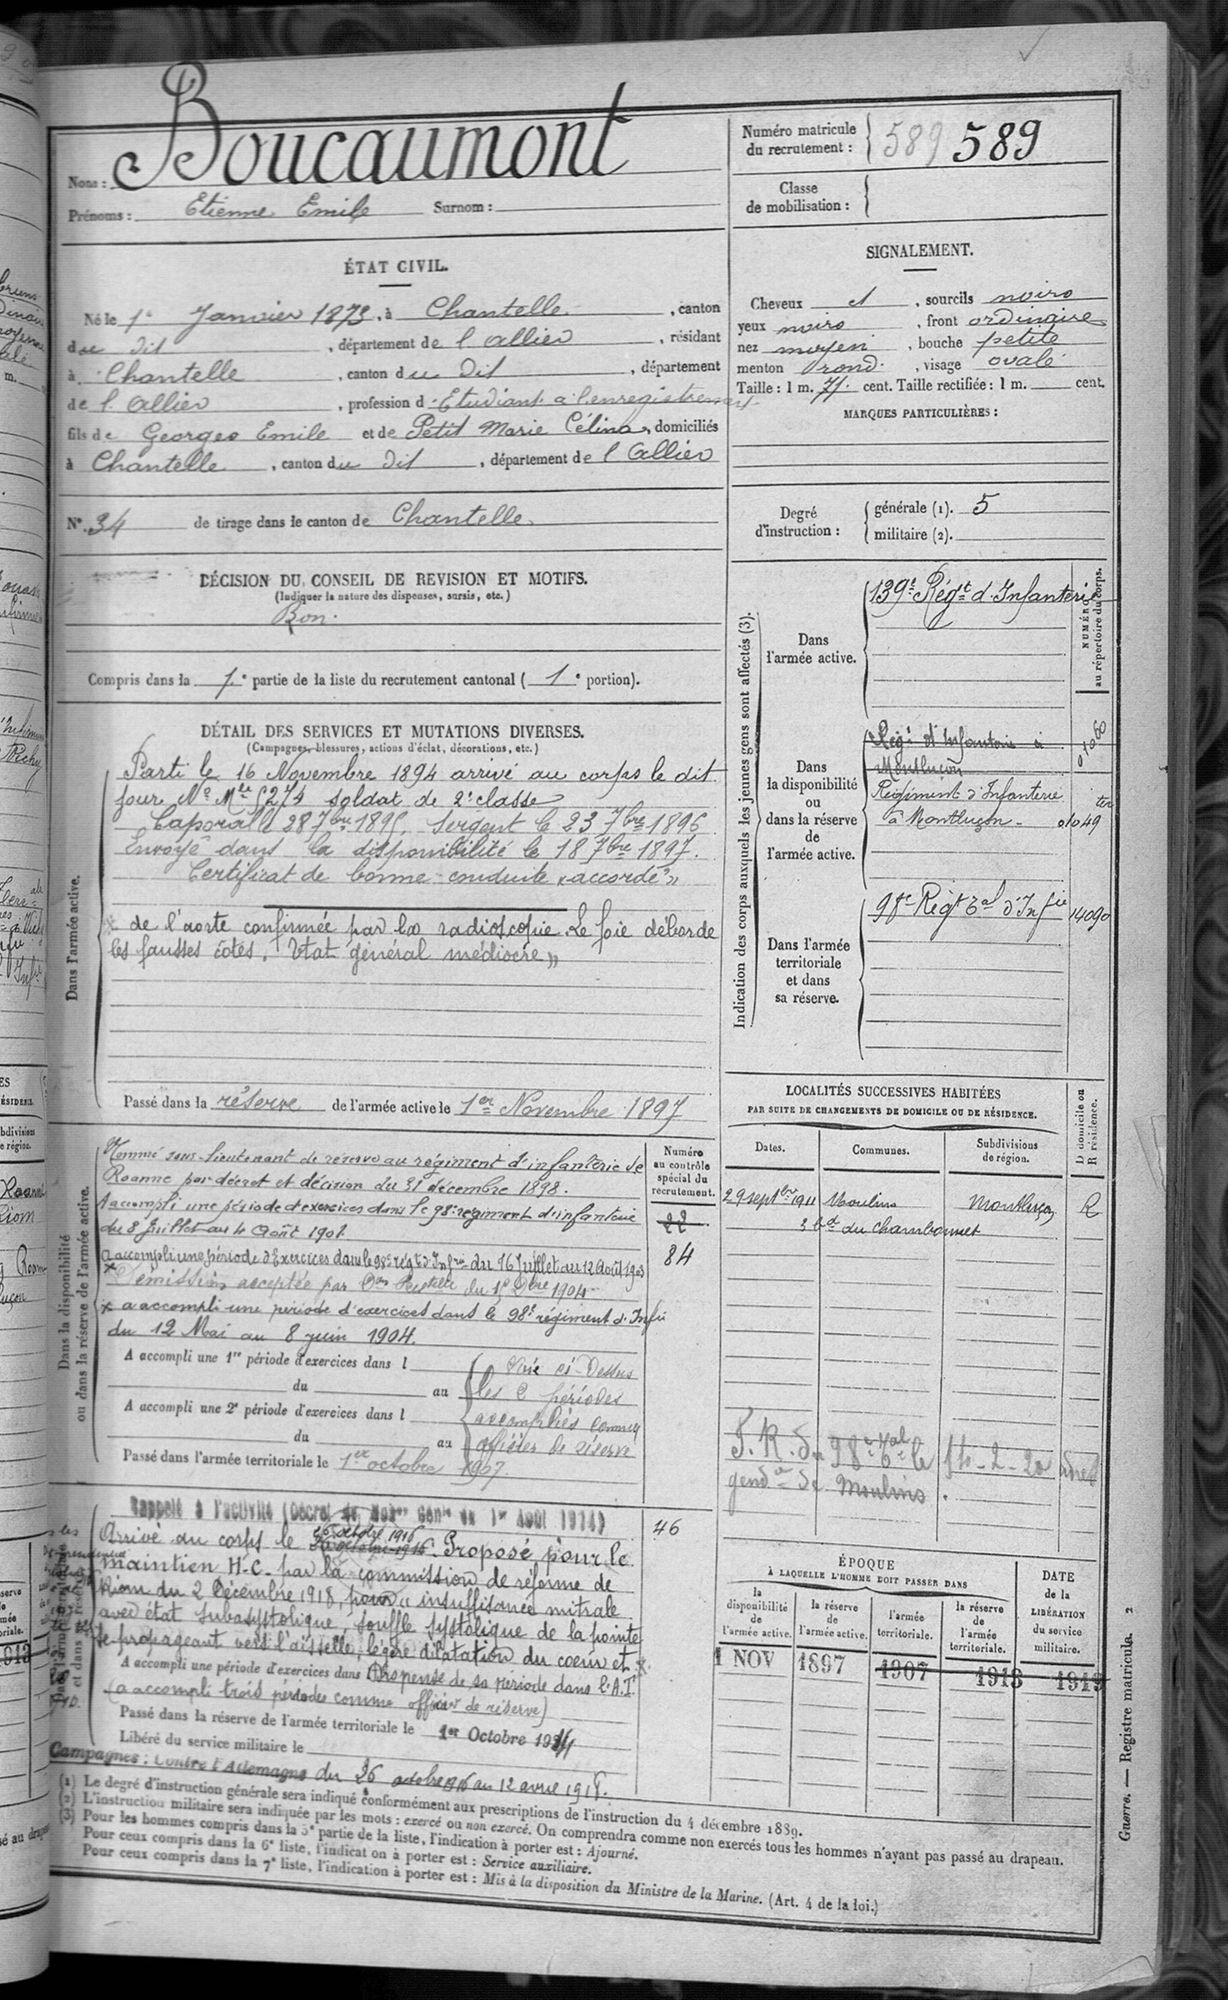 Boucaumont
Nom :
Prénoms : Etienne Emile Surnom :
Numéro matricule du recrutement : 589 589
Classe de mobilisation :
ÉTAT CIVIL.
Né le 1er Janvier 1873, à Chantelle, canton
du dit, département de l'Allier, résidant
à Chantelle, canton du dit, département
de l'Allier, profession d'Etudiant à l'enregistrement
fils de Georges Emile et de Petit Marie Célina, domiciliés
à Chantelle, canton du dit, département de l'Allier
N° 34 de tirage dans le canton de Chantelle.
SIGNALEMENT.
Cheveux et, sourcils noirs
yeux noirs, front ordinaire
nez moyen, bouche petite
menton rond, visage ovale
Taille : 1 m. 71 cent. Taille rectifiée : 1 m. cent.
MARQUES PARTICULIÈRES :
Degré d'instruction : générale (1). 5
militaire (2).
DÉCISION DU CONSEIL DE REVISION ET MOTIFS.
(Indiquer la nature des dispenses, sursis, etc.)
Bon.
Compris dans la 1e partie de la liste du recrutement cantonal (1e portion).
DÉTAIL DES SERVICES ET MUTATIONS DIVERSES.
(Campagnes, blessures, actions d'éclat, décorations, etc.)
Dans l'armée active.
Parti le 16 Novembre 1894 arrivé au corps le dit
jour N° Mle 5274 soldat de 2e classe
Caporal le 28 7bre 1895, Sergent le 23 7bre 1896
Envoyé dans la disponibilité le 18 7bre 1897.
Certificat de bonne conduite "accordé"
* de l'aorte confirmée par la radioscopie. Le foie déborde
les fausses côtes. Etat général médiocre"
Passé dans la réserve de l'armée active le 1er Novembre 1897
Indication des corps auxquels les jeunes gens sont affectés (3).
NUMÉRO au répertoire du corps.
Dans l'armée active.
139e Régt d'Infanterie
Dans la disponibilité ou dans la réserve de l'armée active.
Régt d'Infanterie à
Montluçon
Régiment d'Infanterie
à Montluçon - 01049 ter
Dans l'armée territoriale et dans sa réserve.
98e Régt Tal d'Infie 14090
Dans la disponibilité ou dans la réserve de l'armée active.
Numéro au contrôle spécial du recrutement.
22
84
Nommé sous-lieutenant de réserve au régiment d'infanterie de
Roanne par décret et décision du 31 décembre 1898.
A accompli une période d'exercices dans le 98e régiment d'infanterie
du 8 Juillet au 4 Août 1901
A accompli une période d'Exercices dans le 98e régt d'Infie du 16 Juillet au 12 Août 1903
* Démission acceptée par du 1904
* a accompli une période d'exercices dans le 98e régiment d'Infie
du 12 Mai au 8 juin 1904.
A accompli une 1re période d'exercices dans l
du au
A accompli une 2e période d'exercices dans l
du au
ci-Dessus
les périodes
accomplies comme
officier de réserve
Passé dans l'armée territoriale le 1er octobre 1907.
LOCALITÉS SUCCESSIVES HABITÉES
PAR SUITE DE CHANGEMENTS DE DOMICILE OU DE RÉSIDENCE.
Dates. Communes. Subdivisions de région. D domicile ou R résidence.
29 septbre 1911 Moulins Montluçon R
3 Bd du Chambonnet
98e
gendie de Moulins
Rappelé à l'activité (Décret de Mobon Génle du 1er Août 1914)
46
Arrivé au corps le 26 octobre 1916. Proposé pour le
maintien H-C- par la commission de réforme de
Riom du 2 Décembre 1918, pour "insuffisance mitrale
avec état subasystolique, souffle systolique de la pointe
se propageant vers l'aisselle, légère dilatation du coeur et *
A accompli une période d'exercices dans Dispensé de sa période dans l'A.T.
(a accompli trois périodes comme officier de réserve)
Passé dans la réserve de l'armée territoriale le 1er Octobre 1914
Libéré du service militaire le
Campagnes : Contre l'Allemagne du 26 octobre 1916 au 12 avril 1918.
ÉPOQUE
À LAQUELLE L'HOMME DOIT PASSER DANS
la disponibilité de l'armée active. la réserve de l'armée active. l'armée territoriale. la réserve de l'armée territoriale.
DATE de la LIBÉRATION du service militaire.
1 NOV 1897 1907 1913 1919
(1) Le degré d'instruction générale sera indiqué conformément aux prescriptions de l'instruction du 4 décembre 1889.
(2) L'instruction militaire sera indiquée par les mots : exercé ou non exercé. On comprendra comme non exercés tous les hommes n'ayant pas passé au drapeau.
(3) Pour les hommes compris dans la 5e partie de la liste, l'indication à porter est : Ajourné.
Pour ceux compris dans la 6e liste, l'indication à porter est : Service auxiliaire.
Pour ceux compris dans la 7e liste, l'indication à porter est : Mis à la disposition du Ministre de la Marine. (Art. 4 de la loi.)
Guerre. — Registre matricule. 2